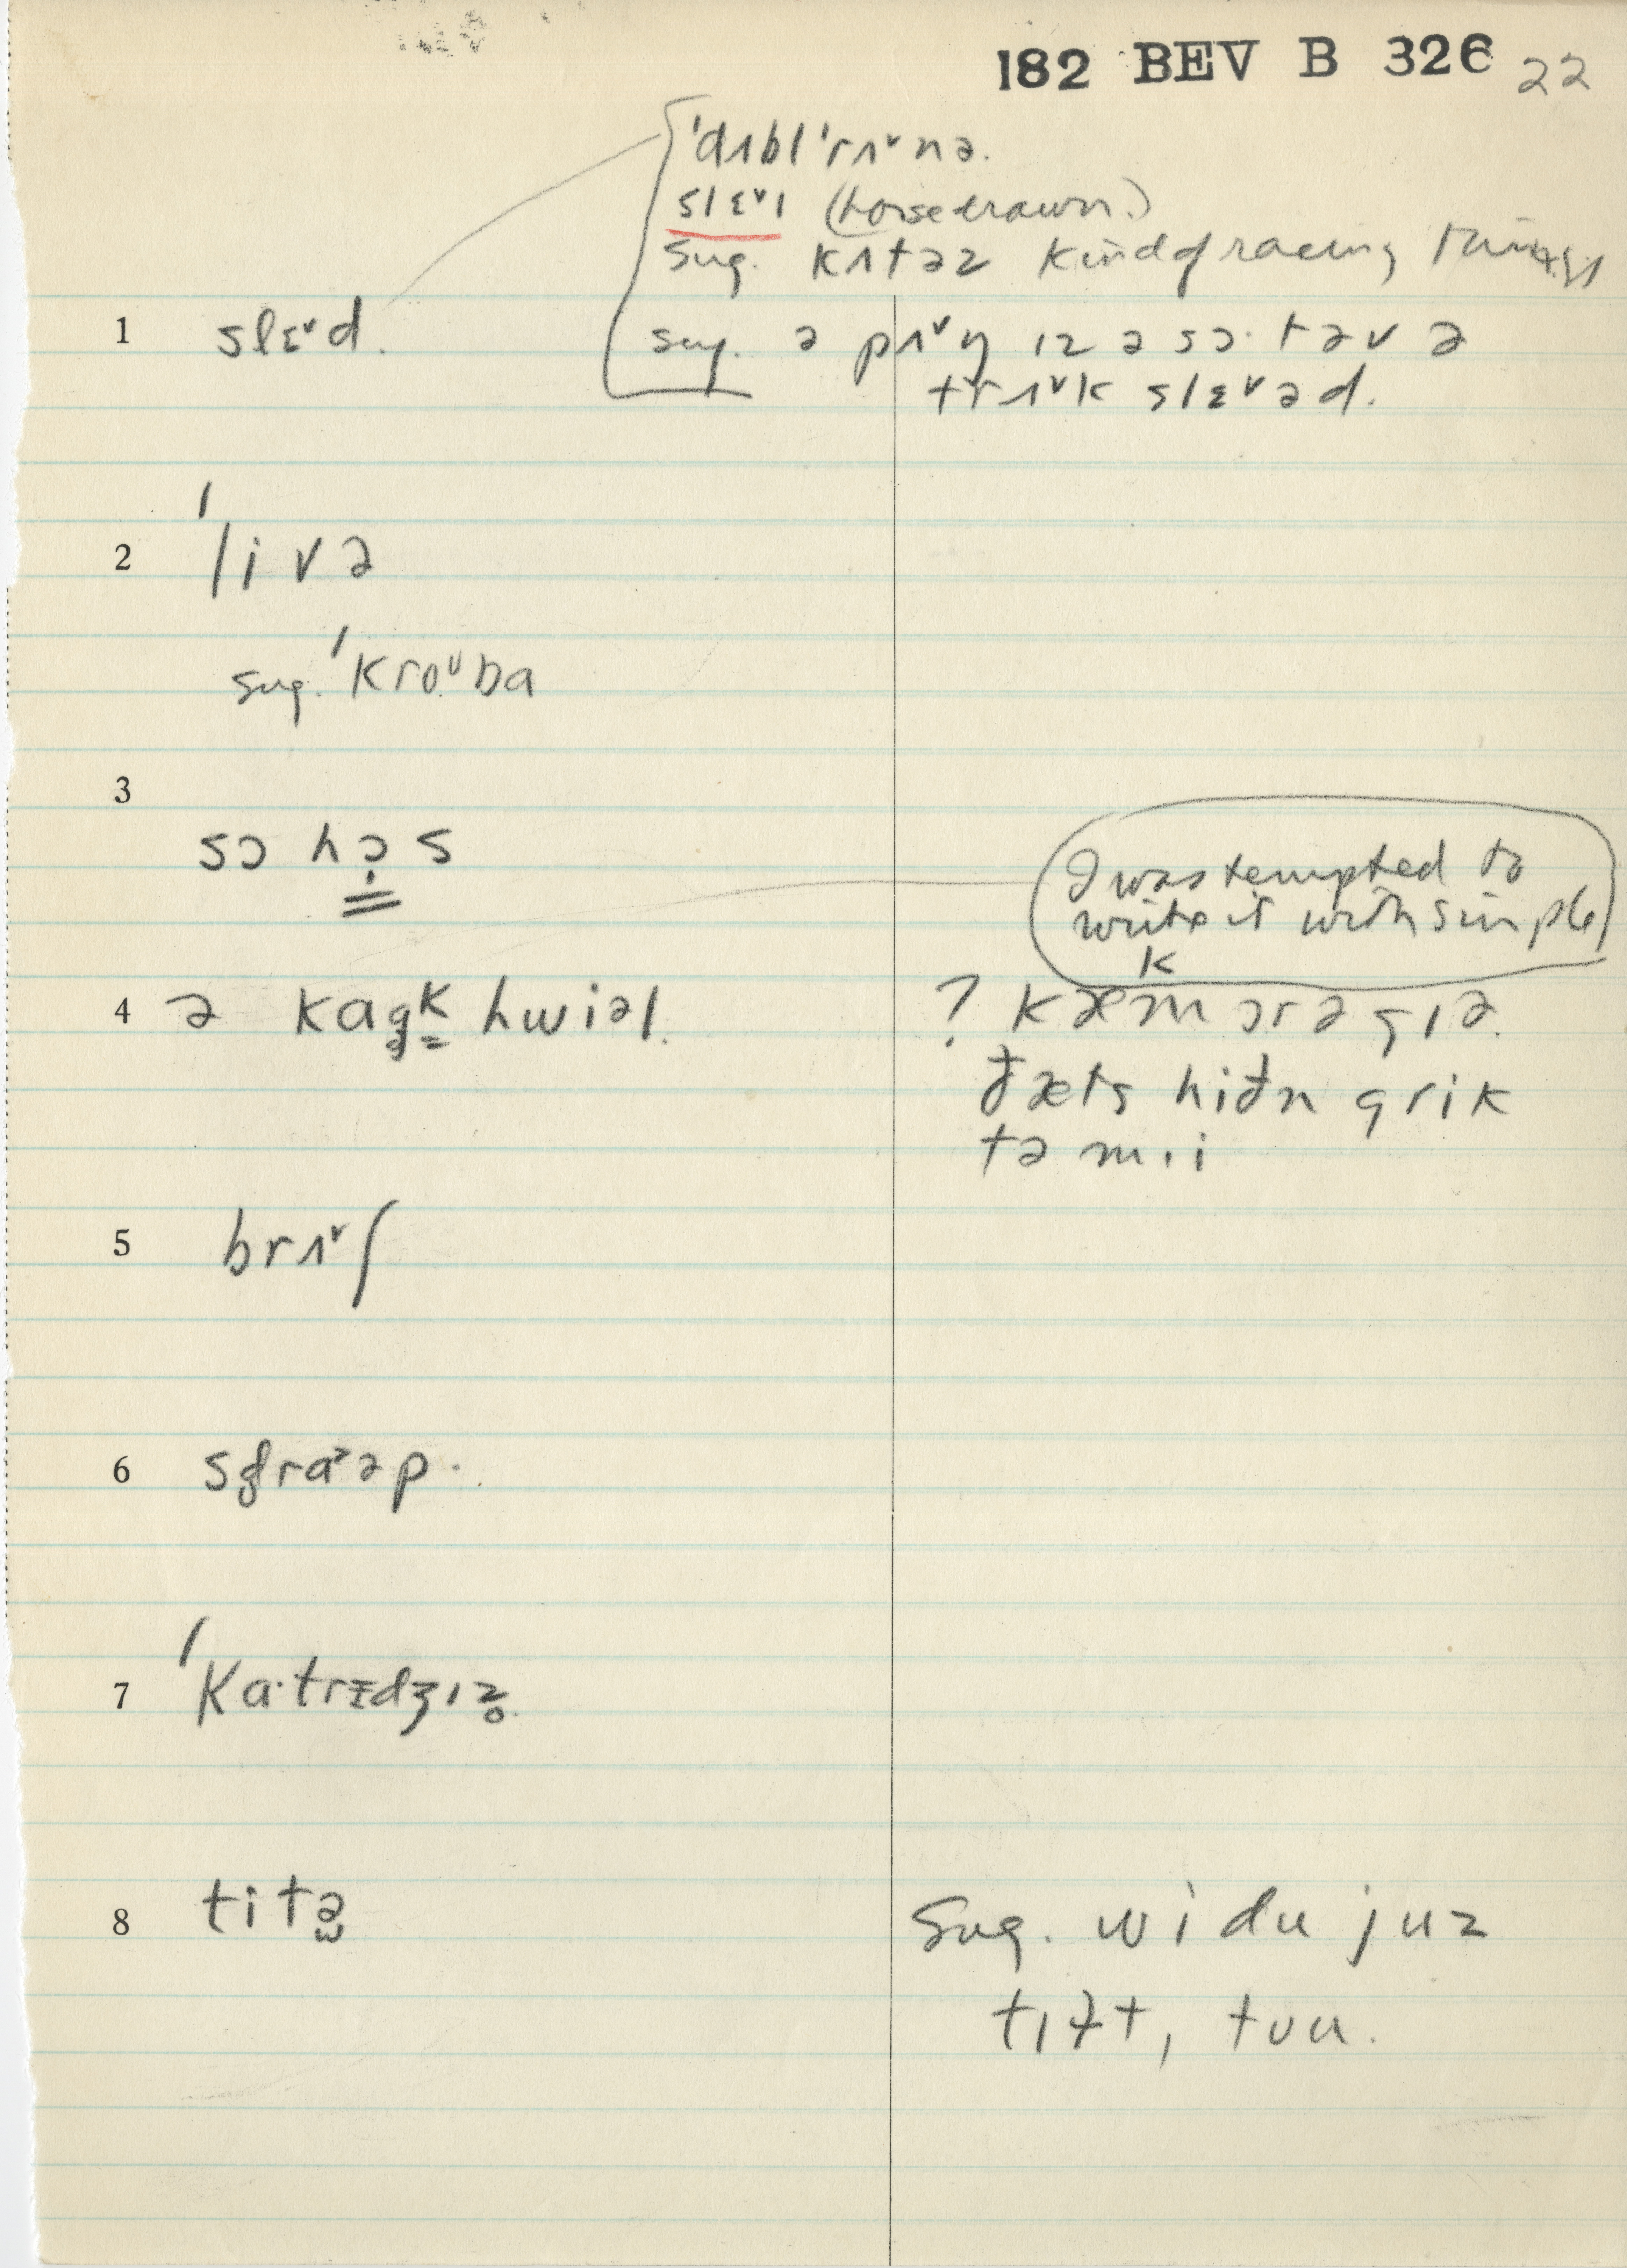 182 BEV B 326 22
ˈdʌblˈrʌ˅nə.
slɛ˅ɪ (horsedrawn)
sug. kʌtəz kind of racing things
1 slɛ˅d.
sug. ə pʌ˅ŋ ɪz ə sɔ·təv ə
trʌ˅k slɛ˅əd.
2 ˈlivə
sug. ˈkroᵘba
3
sɔ hɔ̣s
I was tempted to
write it with simple
k
4 ə kag̥ᵏ hwiəl.
? kæmɔrəgɪə.
ðæts hiðn grik
tə m·i
5 brʌ˅ʃ
6 sg̥raᵊəp.
7 ˈka·trɪ̵dʒɪz̥.
8 titə
Sug. wi du juz
tɪɫt, tuu.